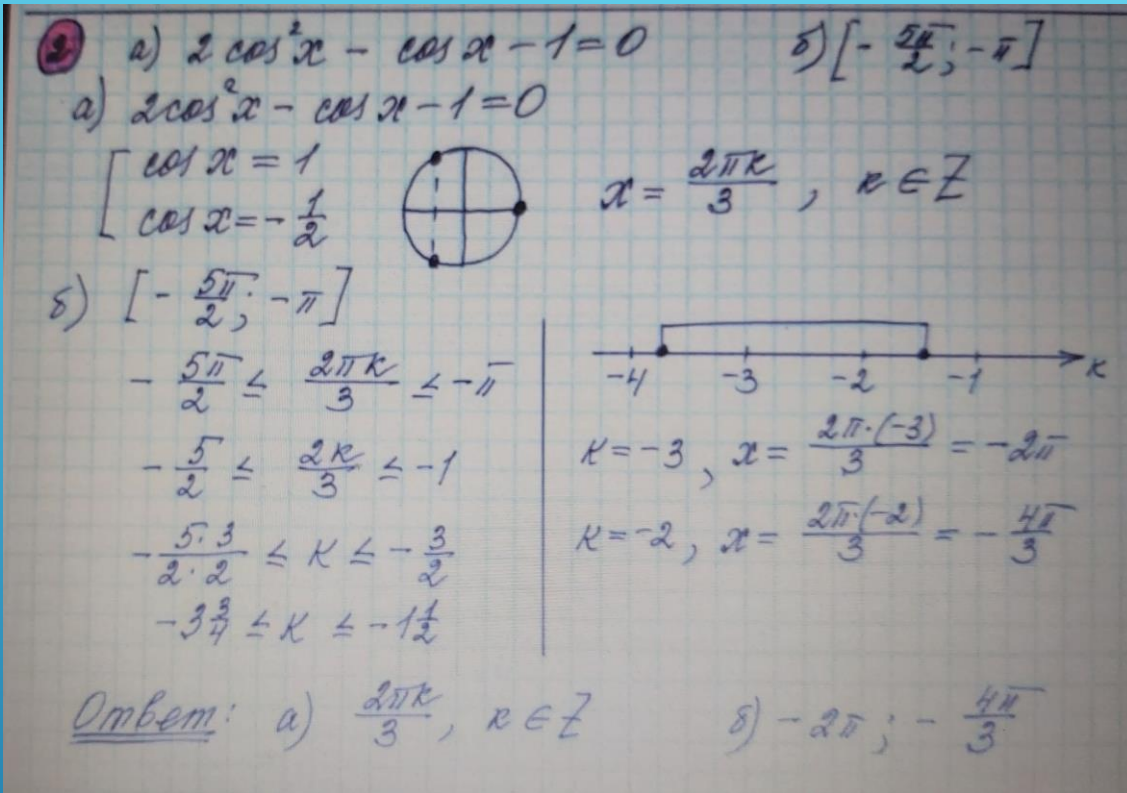 2 а) 2 cos²x - cos x - 1 = 0 б) [- 5π/2; -π]
а) 2cos²x - cos x - 1 = 0
[ cos x = 1
cos x = - 1/2
x = 2πк/3 , к ∈ Z
б) [- 5π/2; -π]
- 5π/2 ≤ 2πк/3 ≤ -π
- 5/2 ≤ 2к/3 ≤ -1
- 5·3/2·2 ≤ к ≤ - 3/2
-3 3/4 ≤ к ≤ -1 1/2
-4 -3 -2 -1 к
к = -3 , x = 2π·(-3)/3 = -2π
к = -2 , x = 2π·(-2)/3 = - 4π/3
Ответ: а) 2πк/3 , к ∈ Z б) -2π ; - 4π/3